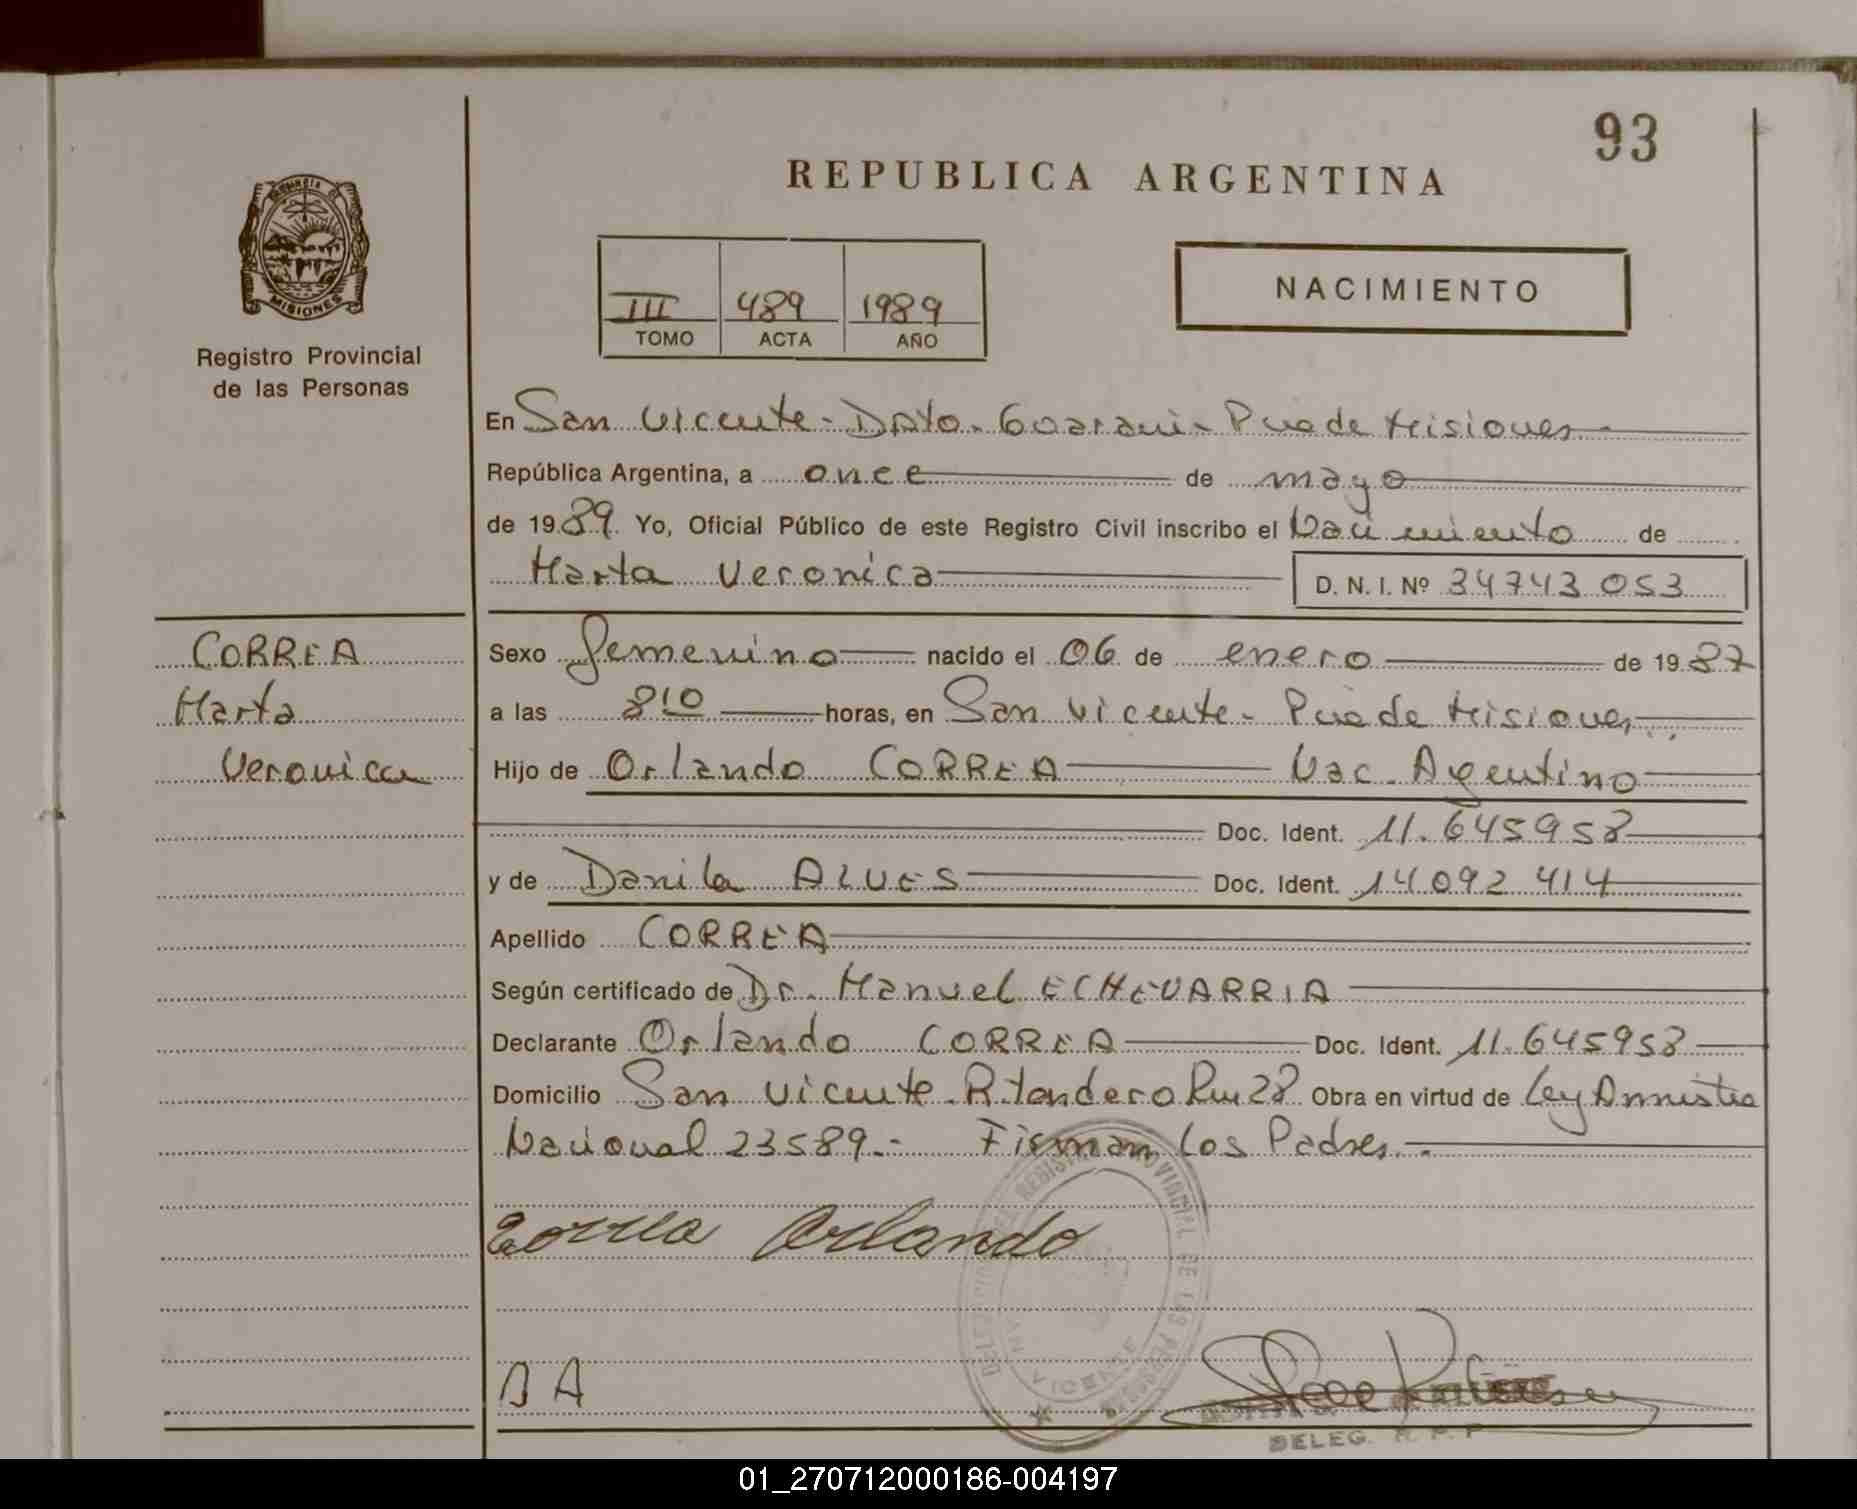 93
REPUBLICA ARGENTINA
MISIONES
Registro Provincial
de las Personas
III 489 1989
TOMO ACTA AÑO
NACIMIENTO
En San Vicente - Dpto. Guarani - Pcia de Misiones
República Argentina, a once de mayo
de 1989. Yo, Oficial Público de este Registro Civil inscribo el Nacimiento de
Marta Veronica D. N. I. Nº 34743053
CORREA
Marta
Veronica
Sexo femenino nacido el 06 de enero de 1987
a las 8 10 horas, en San Vicente - Pcia de Misiones
Hijo de Orlando CORREA Nac. Argentino
Doc. Ident. 11.645958
y de Danila ALVES Doc. Ident. 14092414
Apellido CORREA
Según certificado de Dr. Manuel ECHEVARRIA
Declarante Orlando CORREA Doc. Ident. 11.645958
Domicilio San Vicente. Km 28 Obra en virtud de Ley Amnistia
Nacional 23589.- Firman los Padres.
Correa Orlando
VICENTE
D A
DELEG. R. P. P
01_270712000186-004197